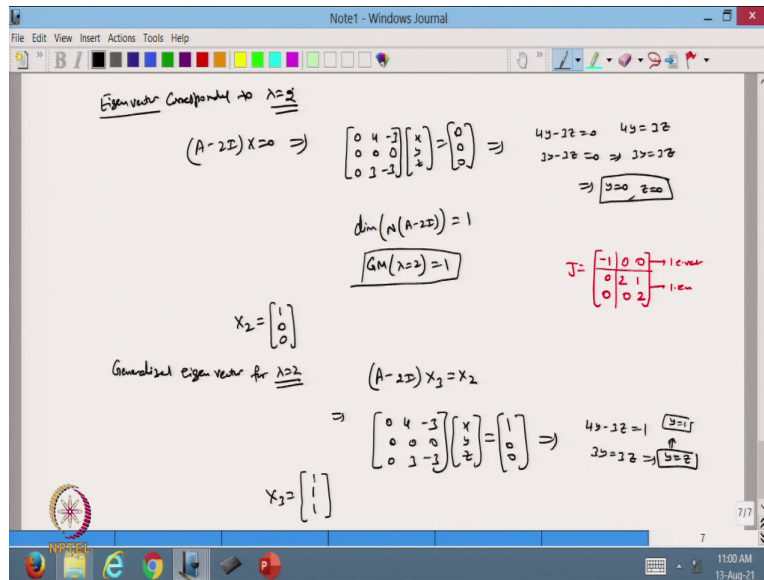 Note1 - Windows Journal
File Edit View Insert Actions Tools Help
Eigenvector Corresponded to λ=2
(A-2I)X=0 ⇒ [0 4 -3; 0 0 0; 0 3 -3][x; y; z]=[0; 0; 0] ⇒ 4y-3z=0 4y=3z
3y-3z=0 ⇒ 3y=3z
⇒ y=0, z=0
dim(N(A-2I))=1
GM(λ=2)=1
J=[-1 0 0; 0 2 1; 0 0 2]
X2=[1; 0; 0]
Generalized eigen vector for λ=2 (A-2I)X3=X2
⇒ [0 4 -3; 0 0 0; 0 3 -3][x; y; z]=[1; 0; 0] ⇒ 4y-3z=1 y=1
3y=3z ⇒ y=z
X3=[1; 1; 1]
7/7
7
NPTEL
11:00 AM
13-Aug-21